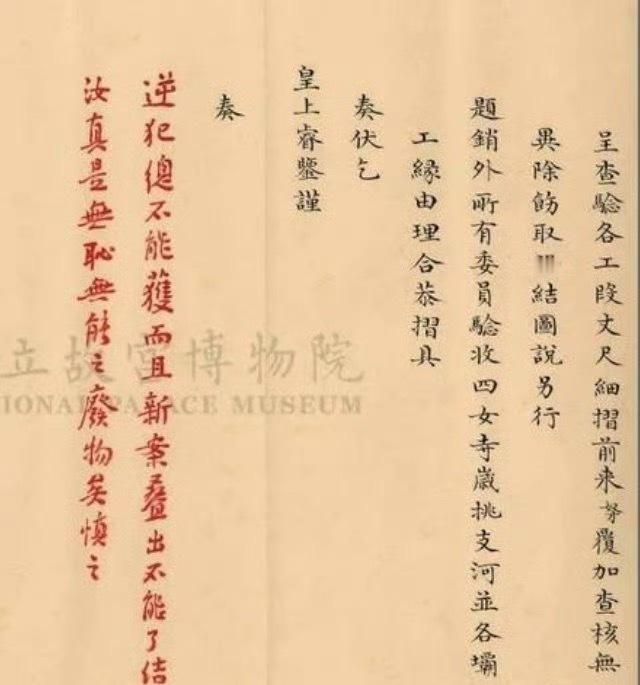 呈查驗各工段丈尺細摺前來臣覆加查核無
異除飭取冊結圖說另行
題銷外所有委員驗收四女寺歲挑支河並各壩
工緣由理合恭摺具
奏伏乞
皇上睿鑒謹
奏
逆犯總不能獲而且新案疊出不能了結
汝真是無恥無能之廢物矣慎之
立故宮博物院
IONAL PALACE MUSEUM